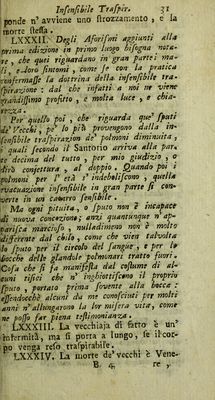 Insensibile Traspir. 31
ponde n' avviene uno strozzamento, e la
morte stessa.
LXXXII. Degli Aforismi aggiunti alla
prima edizione in primo luogo bisogna nota-
re, che quei riguardano in gran parte i ma-
li, e loro sintomi, come se con la pratica
confermasse la dottrina della insensibile tra-
spirazione: dal che infatti a noi ne viene
grandissimo profitto, e molta luce, e chia-
rezza.
Per quello poi, che riguarda que' sputi
de' Vecchi, pe' lo più provengono dalla in-
sensibile traspirazione de' polmoni diminuita,
i quali secondo il Santorio arriva alla par-
te decima del tutto, per mio giudizio, o
dirò conjettura, al doppio. Quando poi i
polmoni per l' età s' indeboliscono, quella
evacuazione insensibile in gran parte si con-
verte in un catarro sensibile.
Ma ogni pituita, o sputo non è incapace
di nuova concozione; anzi quantunque n' ap-
parisca marcioso, nulladimeno non è molto
differente dal chilo, come che vien talvolta
lo sputo per il circolo del sangue, e per le
bocche delle glandole polmonari tratto fuori.
Cosa che si fa manifesta dal costume di al-
cuni tisici che n' inghiottiscono il proprio
sputo, portato prima sovente alla bocca:
essendocchè alcuni da me conosciuti per molti
anni n' allungarono la lor misera vita, come
ne posso far piena testimonianza.
LXXXIII. La vecchiaja di fatto è un'
infermità, ma si porta a lungo, se il cor-
po venga reso traspirabile.
LXXXIV. La morte de' vecchi è Vene-
B 4 re